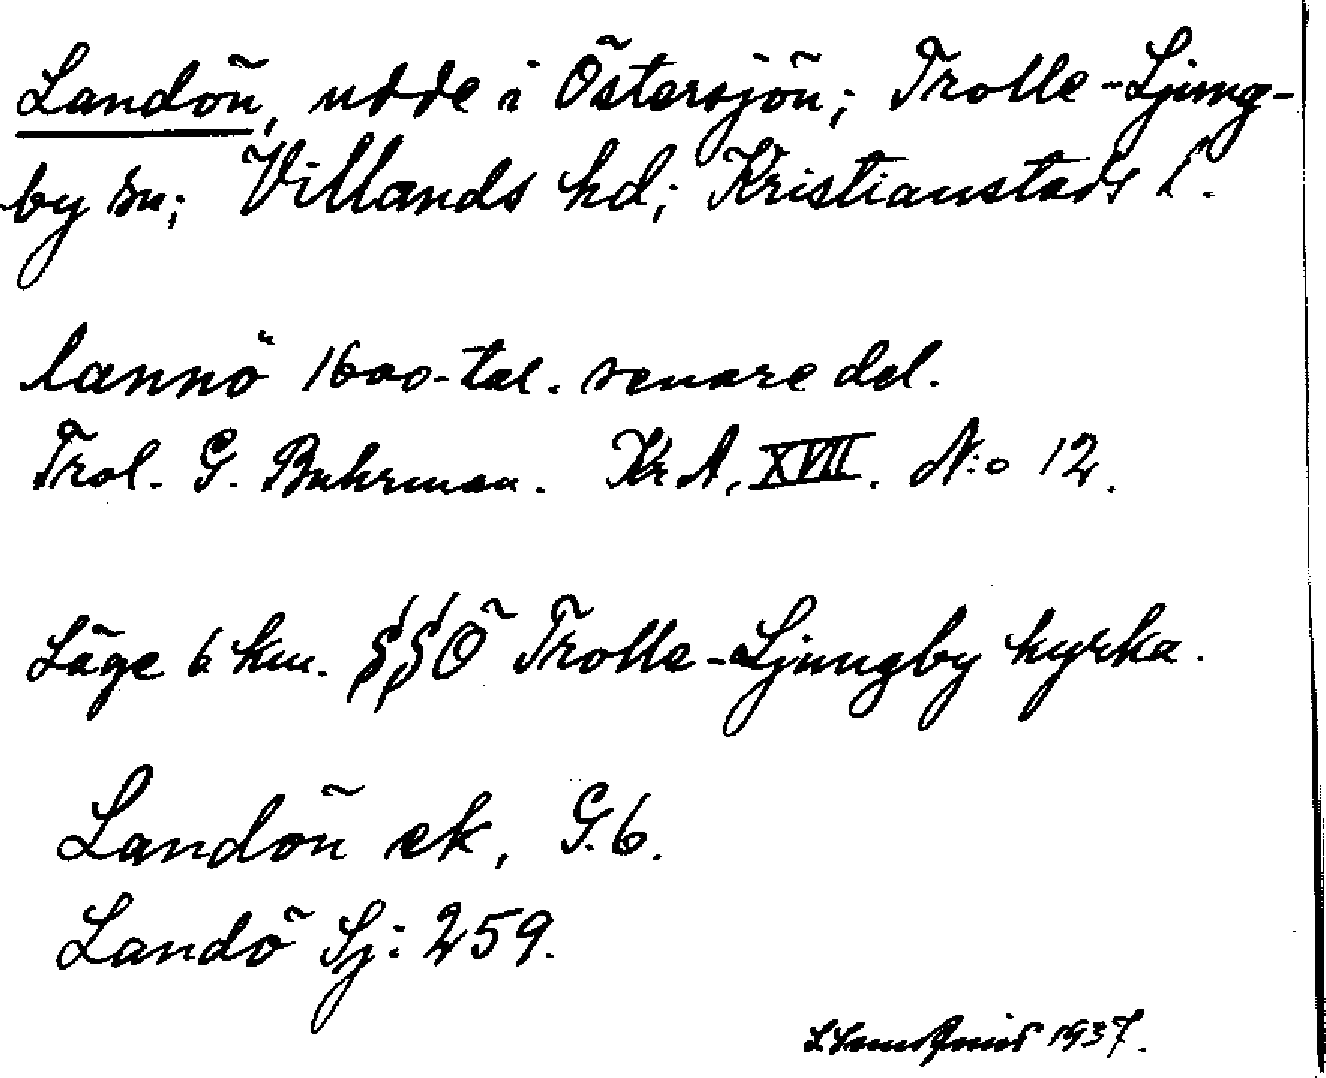 Landön, udde i Östersjön; Trolle-Ljung-
by sn; Villands hd; Kristianstads l.
lannö 1600-tal. senare del.
Trol. G. Buhrman. Kr A. XVII. N:o 12.
Läge 6 km. SSÖ Trolle-Ljungby kyrka.
Landön ek, G.6.
Landö Sj: 259.
1937.